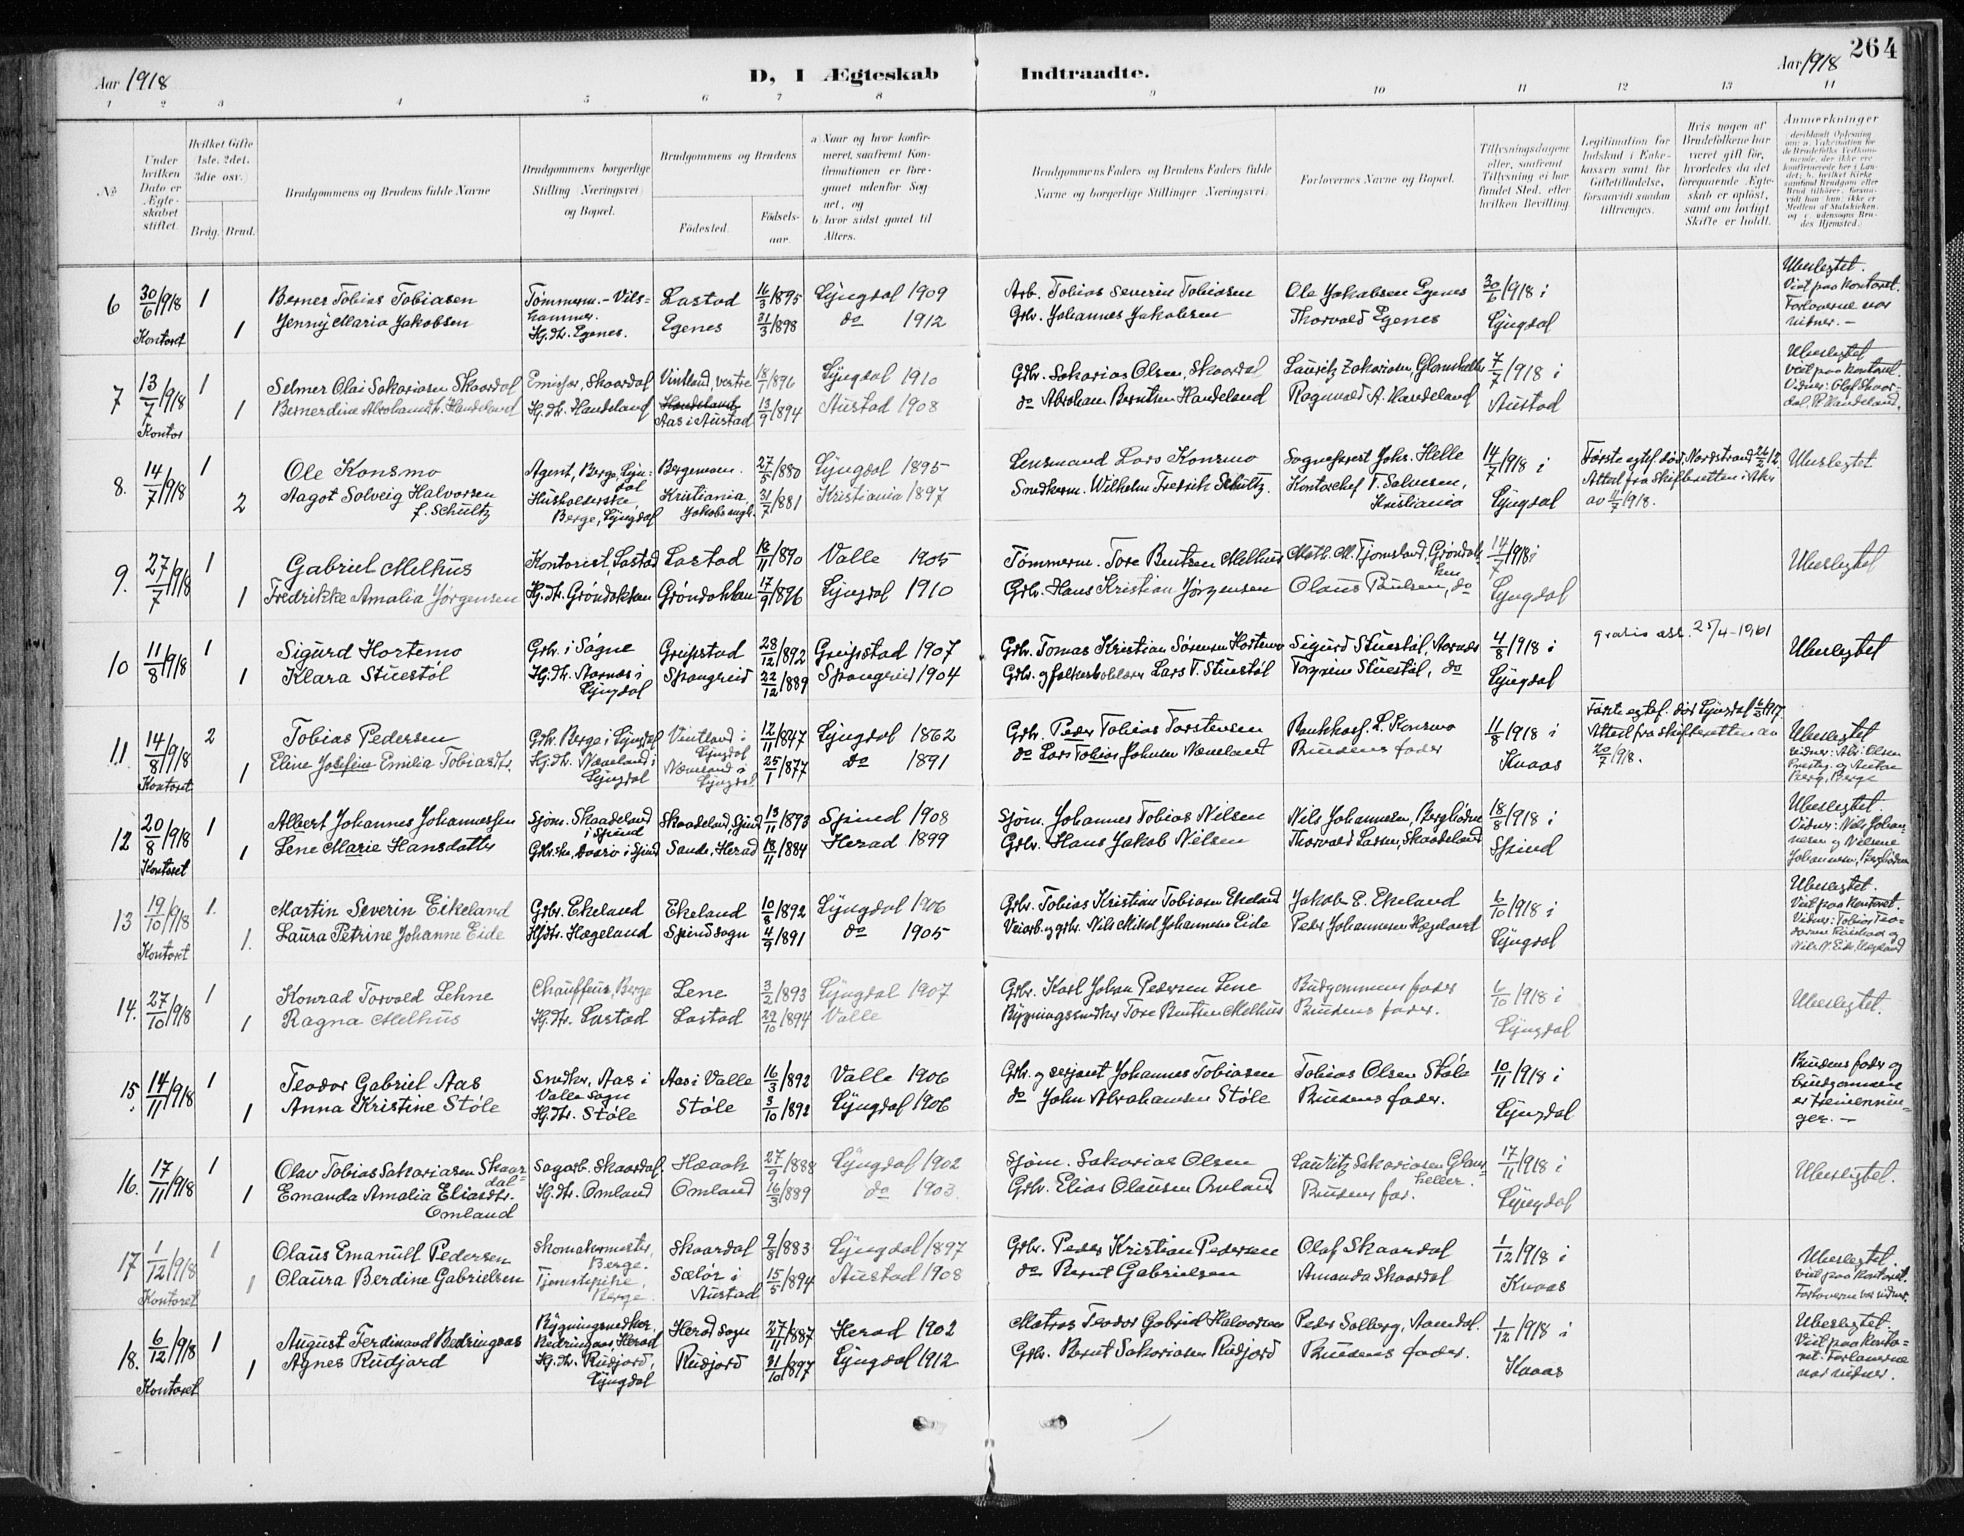 264
Aar 1918
D, I Ægteskab Indtraadte.
Aar 1918
1 2 3 4 5 6 7 8 9 10 11 12 13 14
No
Under hvilken Dato er Ægteskabet stiftet.
Hvilket Gifte 1ste, 2det, 3die osv.
Brdg. Brud.
Brudgommens og Brudens fulde Navne
Brudgommens borgerlige Stilling (Næringsvei) og Bopæl.
Brudgommens og Brudens
Fødested.
Fødselsaar.
a Naar og hvor konfirmeret, saafremt Konfirmationen er foregaaet udenfor Sognet, og
b. hvor sidst gaaet til Alters.
Brudgommens Faders og Brudens Faders fulde Navne og borgerlige Stillinger (Næringsvei).
Forlovernes Navne og Bopæl.
Tillysningsdagene eller, saafremt Tillysning ei har fundet Sted, efter hvilken Bevilling.
Legitimation for Indskud i Enkekassen samt for Giftetilladelse, forsaavidt saadan tiltrænges.
Hvis nogen af Brudefolkene har været gift før, hvorledes da det foregaaende Ægteskab er opløst, samt om lovligt Skifte er holdt.
Anmerkninger
6 30/6 1918 1 Bernes Tobias Tobiasen Tømmerm. - Vilshammer. Lastad 16/3 1895 Lyngdal 1909 Arb. Tobias Severin Tobiasen Ole Jakobsen Egenes 30/6 1918 i Ubeslegtet. Viet paa kontoret.
Kontoret 1 Jenny Maria Jakobsen Hj. dt. Egenes. Egenes 21/3 1898 do 1912 Grb. Johannes Jakobsen Thorvald Egenes Lyngdal Forloverne var vidner. -
7 13/7 1918 1 Selmer Olai Sakariasen Skaardal Emissær, Skaardal Vintland, vestre 18/1 1896 Lyngdal 1910 Grb. Sakarias Olsen, Skaardal Lauritz Zakarisen, Glomsheller 7/7 1918 i Ubeslegtet viet paa kontoret.
Kontor 1 Bernerdine Abrahamdt. Handeland Hj. dt. Handeland Handeland Aas i Austad 13/9 1894 Austad 1908 do Abraham Berntsen Handeland Ragnvald A. Handeland Austad Vidner: Olaf Skaardal, R. Handeland.
8. 14/7 1918 1 Ole Konsmo Agent, Berge, Lyngdal Bergensm. 27/5 1880 Lyngdal 1895 Lensmand Lars Konsmo Sogneprest Johs. Helle 14/7 1918 i Første egtef. død Nordstrand 26/2 12. Ubeslegtet
2 Aagot Solveig Halvorsen f. Schultz Husholderske, Berge, Lyngdal Kristiania, Jakobs mgh. 31/7 1881 Kristiania 1897 Snedkerm. Wilhelm Fredrik Schultz. Kontorchef T. Salvesen, Kristiania Lyngdal Attest fra Skifteretten i Aker av 11/7 1918.
9. 27/7 1918 1 Gabriel Melhus Kontorist, Lastad Lastad 18/11 1890 Valle 1905 Tømmerm. Tore Bentsen Melhus Math. M. Tjomsland, Grøndokken 14/7 1918 i Ubeslegtet
1 Fredrikke Amalia Jørgensen Hj. dt. Grøndokken Grøndokken 17/9 1896 Lyngdal 1910 Grb. Hans Kristian Jørgensen Olaus Paulsen, do Lyngdal
10 11/8 1918 1 Sigurd Hortemo Grb. i Søgne Greipstad 28/12 1892 Greipstad 1907 Grb. Tomas Kristian Sørensen Hortemo Sigurd Stuestøl, Aarnæs 4/8 1918 i gratis att. 25/4-1961 Ubeslegtet
1 Klara Stuestøl Hj. dt. Aarnæs i Lyngdal Spangreid 22/12 1889 Spangreid 1904 Grb. og folkeskolelærer Lars T. Stuestøl Torgrim Stuestøl, do Lyngdal
11. 14/8 1918 2 Tobias Pedersen Grb. Berge i Lyngdal Vintland i Lyngdal 12/11 1847 Lyngdal 1862 Grb. Peder Tobias Torstensen Bankkass. L. Konsmo 11/8 1918 i Første egtef. død Lyngdal 6/3 1917. Ubeslegtet
Kontoret 1 Eline Josefine Emilia Tobiasdtr. Hj. dt. Næveland i Lyngdal Næveland i Lyngdal 25/1 1877 do 1891 do Lars Tobias Johnsen Næveland Brudens fader Kvaas Attest fra skifteretten av 20/7 1918. vidner: Abr. Olsen Prestbg. og Anton Berg, Berge
12 20/8 1918 1 Albert Johannes Johannessen Sjøm. Skaadeland i Spind Skaadeland, Spind 13/11 1893 Spind 1908 Sjøm. Johannes Tobias Nilsen Nils Johannesen, Bergheden 18/8 1918 i Ubeslegtet.
Kontoret 1 Lene Marie Hansdatter Grb. sk. Aarø i Spind Sande, Herad 18/11 1884 Herad 1899 Grb. Hans Jakob Nilsen Thorvald Larsen, Skaadeland Spind Vidner: Nils Johannesen og Nilsene Johannesen, Bergheden
13 19/10 1918 1. Martin Severin Eikeland Grbr. Ekeland Ekeland 10/8 1892 Lyngdal 1906 Grb. Tobias Kristian Tobiasen Ekeland Jakob E. Ekeland 6/10 1918 i Ubeslegtet. Viet paa kontoret.
Kontoret 1. Laura Petrine Johanne Eide Hj. dtr. Hægeland Spind sogn 4/9 1891 do 1905 Veiarb. og grb. Nils Mikal Johannesen Eide Peder Johannesen Hægeland Lyngdal
14. 27/10 1918 1 Konrad Torvald Lehne Chauffeur, Berge Lene 3/2 1893 Lyngdal 1907 Grb. Karl Johan Pedersen Lene Brudgommens fader 6/10 1918 i Ubeslegtet.
1 Ragna Melhus Hj. dt. Lastad Lastad 29/10 1894 Valle Bygningssnedker Tore Bentsen Melhus Brudens fader. Lyngdal
15. 14/11 1918 1 Teodor Gabriel Aas Snedker, Aas i Valle sogn Aas i Valle 16/3 1892 Valle 1906 Grb. og serjant Johannes Tobiasen Tobias Olsen Støle 10/11 1918 i Brudens fader og brudgommen er tremenninger. -
1 Anna Kristine Støle Hj. dt. Støle Støle 3/10 1892 Lyngdal 1906 do John Abrahamsen Støle Brudens fader. Lyngdal
16. 17/11 1918 1 Olav Tobias Sakariasen Skaardal Sagarb. Skaardal Haaak 27/9 1888 Lyngdal 1902 Sjøm. Sakarias Olsen Lauritz Sakariasen Glomsheller. 17/11 1918 i Ubeslegtet.
1 Emanda Amalia Eliasdtr. Omland Hj. dt. Omland Omland 16/3 1889 do 1903. Grb. Elias Olausen Omland Brudens far. Lyngdal
17 1/12 1918 1 Olaus Emanuel Pedersen Skomakermester, Berge. Skaardal 9/8 1883 Lyngdal 1897 Grb. Peder Kristian Pedersen Olaf Skaardal 1/12 1918 i Ubeslegtet. viet paa kontoret.
Kontoret 1 Olaura Berdine Gabrielsen Tjenestepike, Berge. Sælør i Austad 15/5 1894 Austad 1908 do Bernt Gabrielsen Amanda Skaardal Kvaas Forloverne var vidner.
18. 6/12 1918 1 August Ferdinand Bedringaas Bygningssnedker, Bedringaas, Herad Herad sogn 27/11 1887 Herad 1902 Matros Teodor Gabriel Halvorsen Peder Solberg, Aamdal. 1/12 1918 i Ubeslegtet. Viet paa kontoret.
Kontoret 1 Agnes Rudjord Hj. dt. Rudjord, Lyngdal Rudjord 31/10 1897 Lyngdal 1912 Grb. Bernt Sakariasen Rudjord Brudens fader. Kvaas Forloverne var vidner.